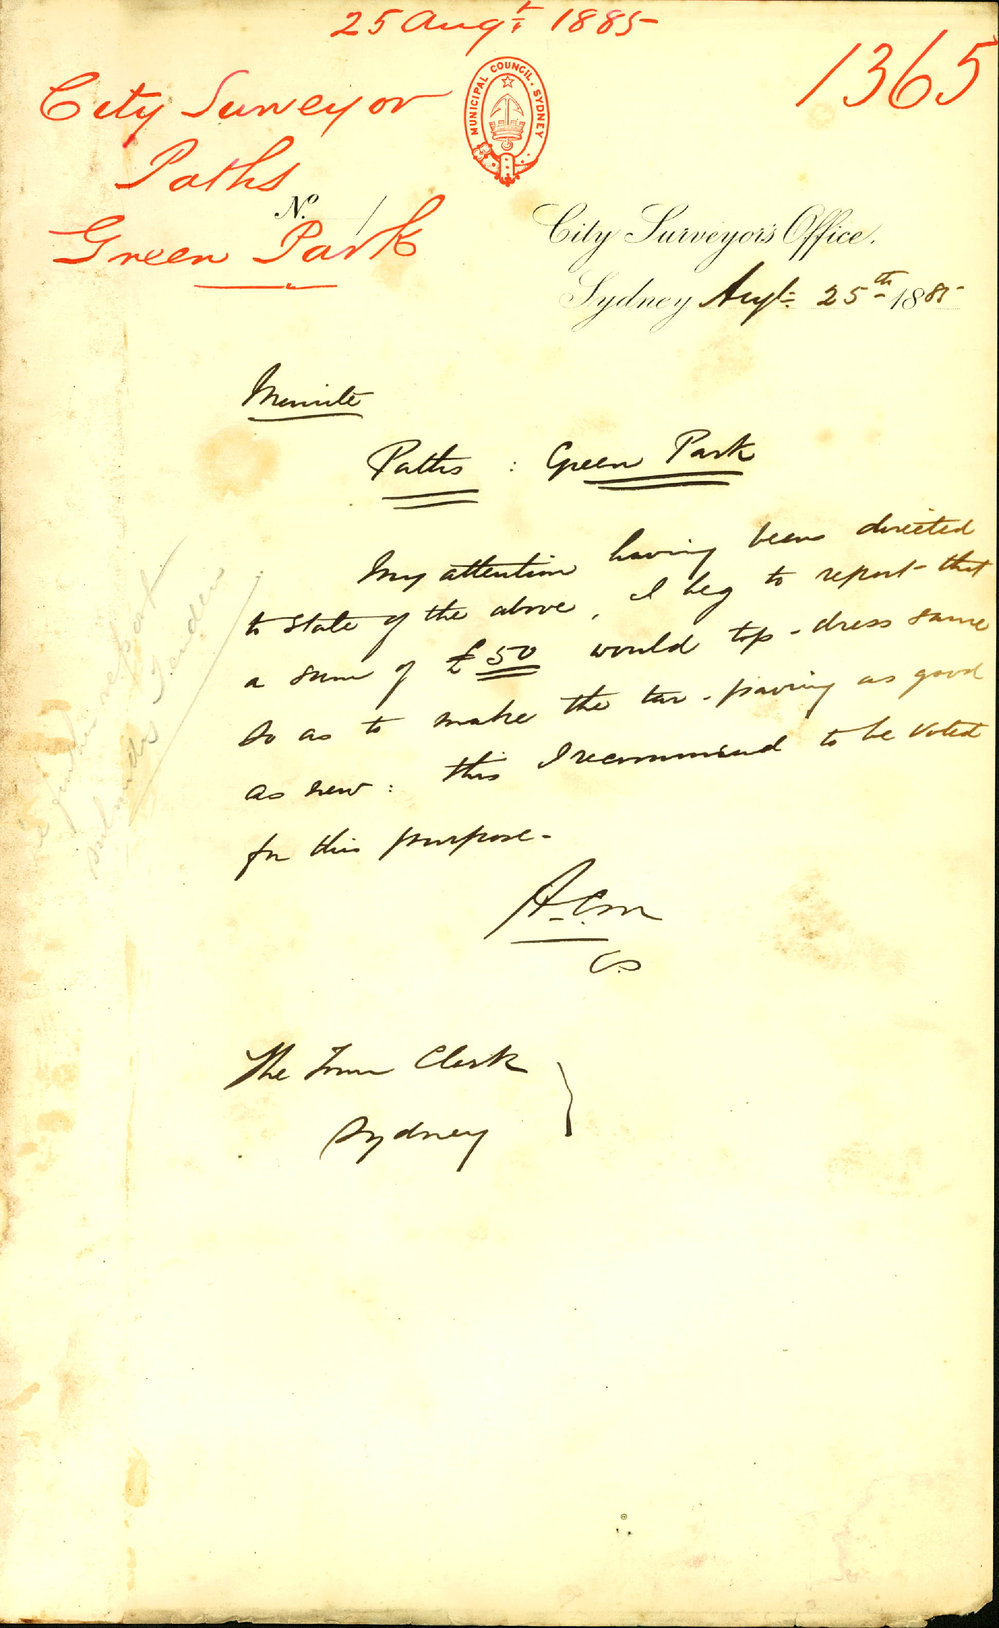 25 Augt. 1885
1365
City Surveyor
Paths
Green Park
MUNICIPAL COUNCIL. SYDNEY
No. 1
City Surveyor's Office.
Sydney Augt. 25th 1885
Minute
Paths : Green Park
My attention having been directed
to state of the above, I beg to report that
a sum of £50 would top-dress same
so as to make the tar-paving as good
as new: this I recommend to be voted
for this purpose.
CS
The Town Clerk
Sydney
report
Tender